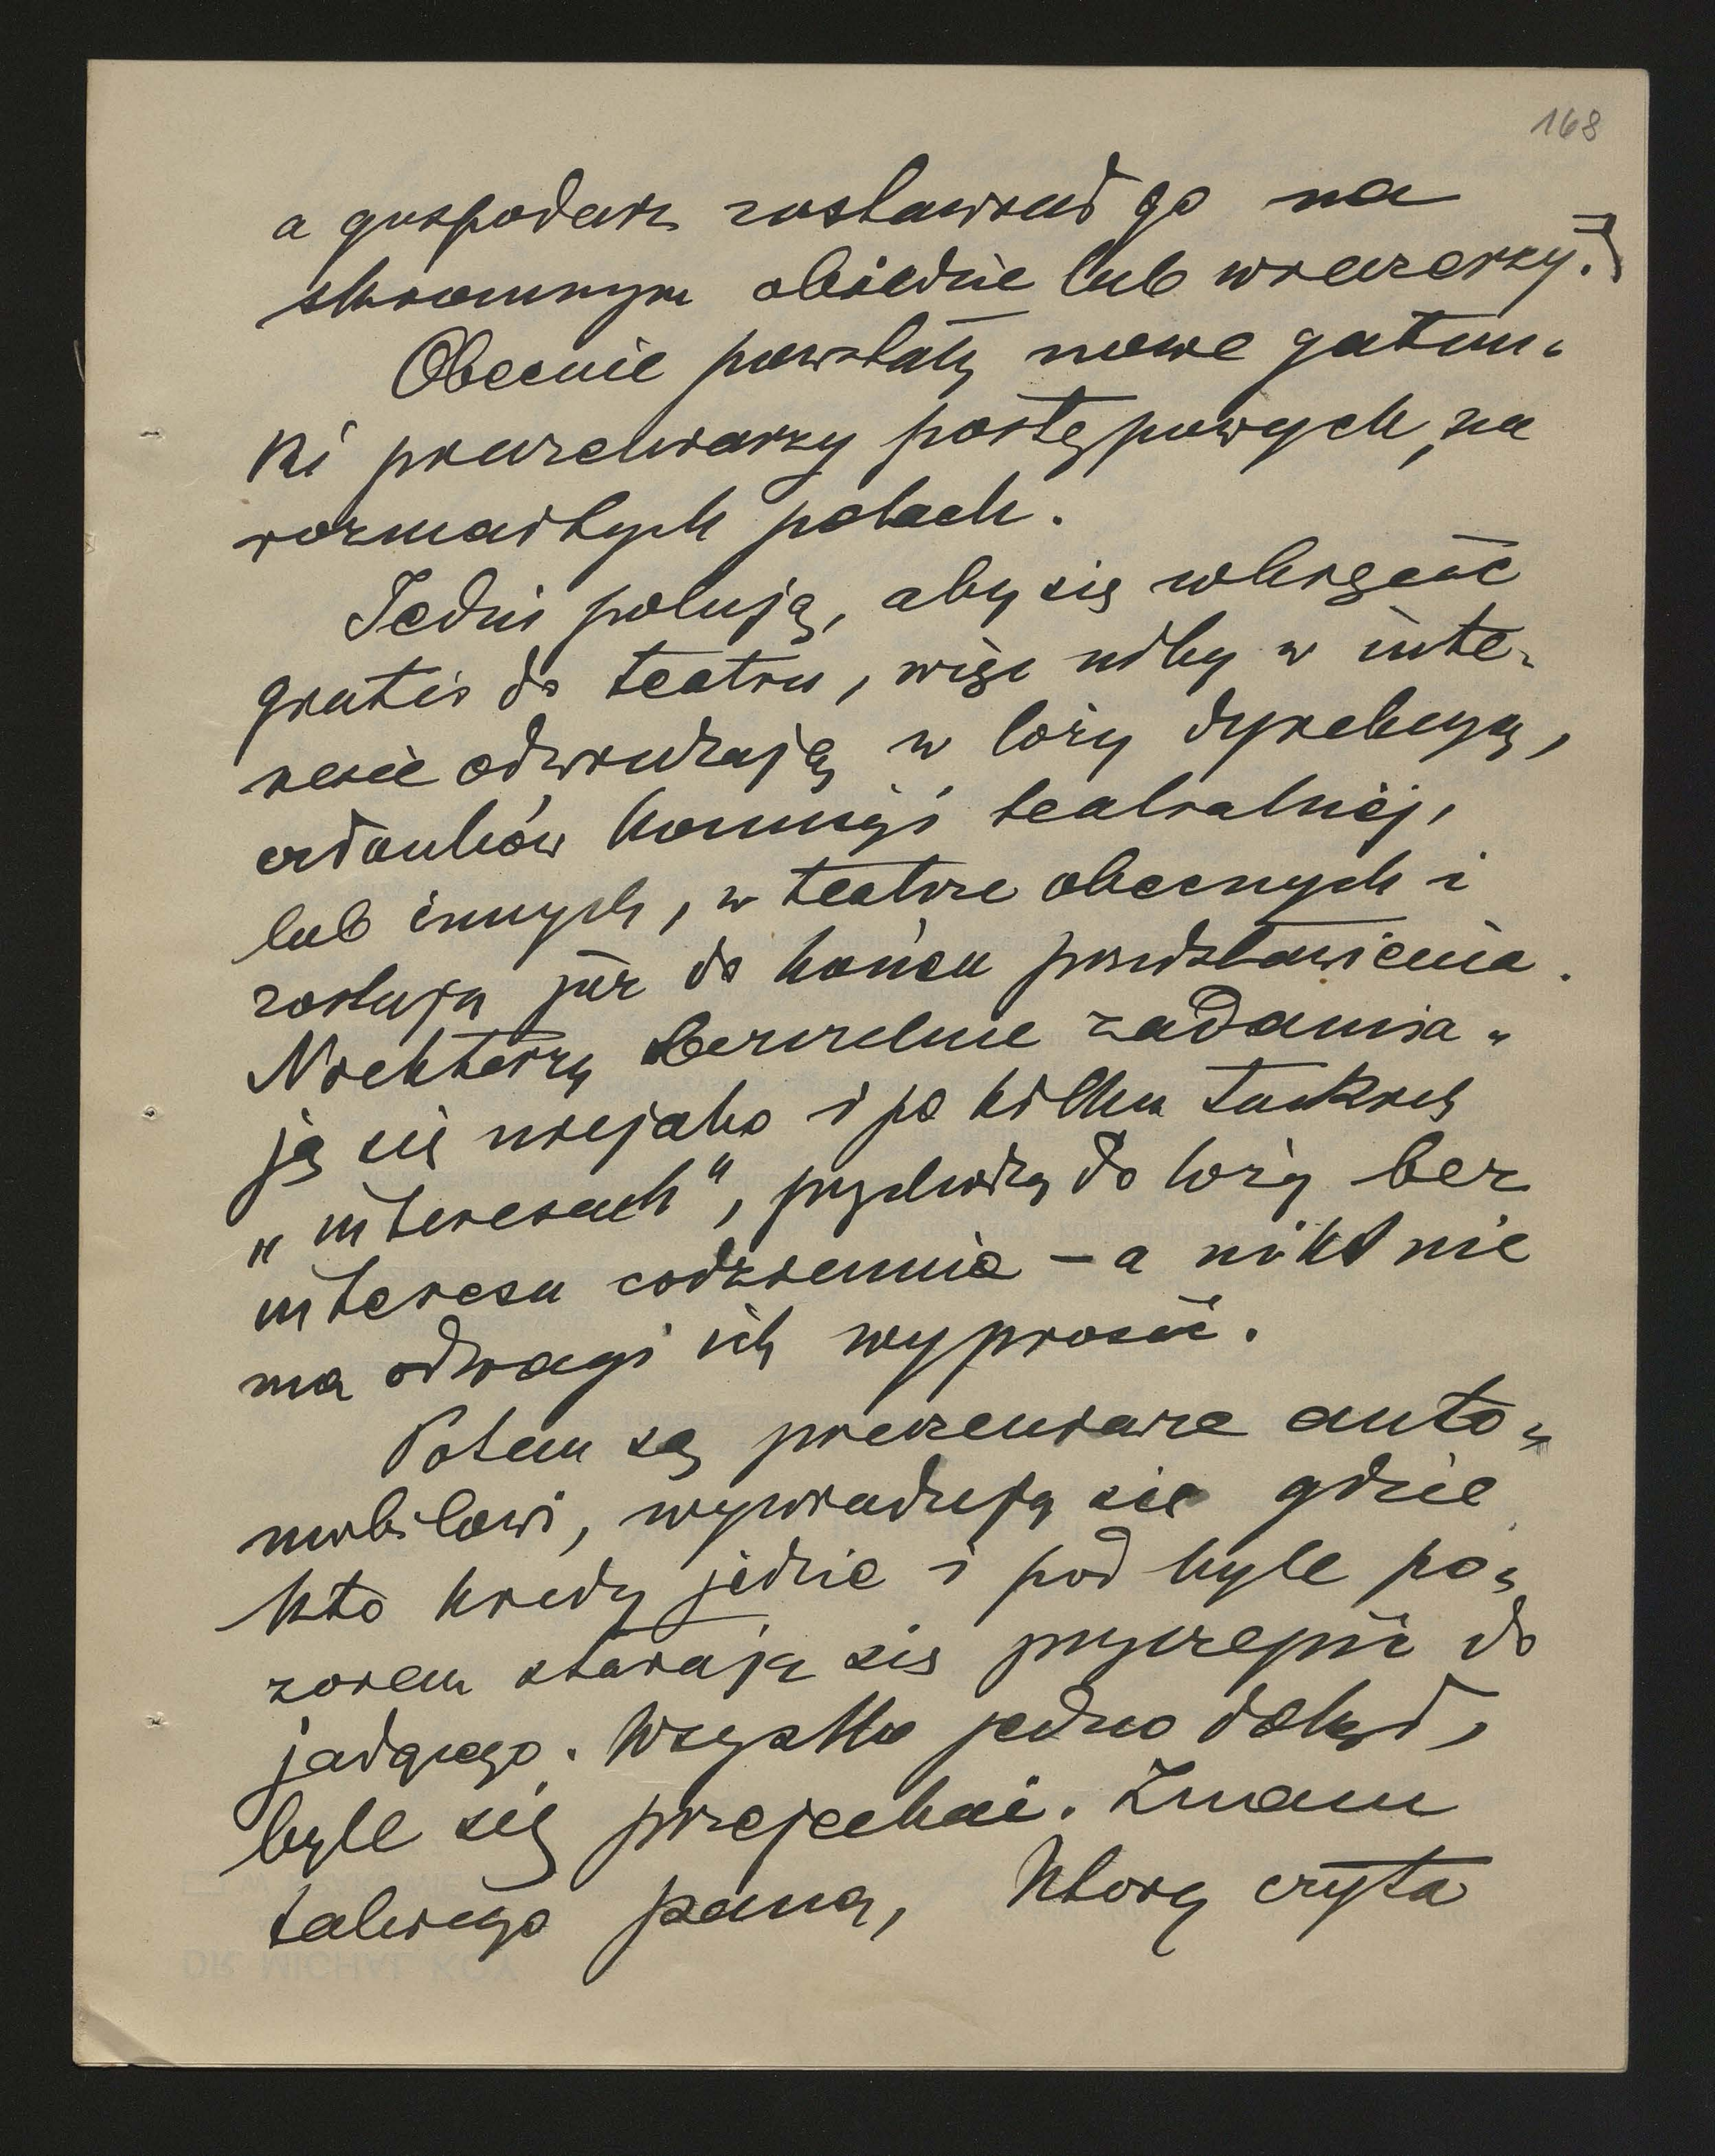 168
a gospodarz zostawiał go na
skromnym obiedzie lub wieczerzy."
Obecnie powstały nowe gatun-
ki pieczeniarzy postępowych, na
rozmaitych polach.
Jedni polują, aby się wkręcić
gratis do teatru, więc niby w inte-
resie odwiedzają w loży dyrekcyę,
członków komisyi teatralnej,
lub innych, w teatrze obecnych i
zostają już do końca przedstawienia.
Niektórzy bezczelnie zadamia-
ją się niejako i po kilku takich
„interesach", przychodzą do loży bez
interesu codziennie – a nikt nie
ma odwagi ich wyprosić.
Potem są pieczeniarze auto-
mobilowi, wywiadują się gdzie
kto kiedy jedzie i pod byle po-
zorem starają się przyczepić do
jadącego. Wszystko jedno dokąd,
byle się przejechać. Znam
takiego pana, który czyta
DR MICHAŁ KOY